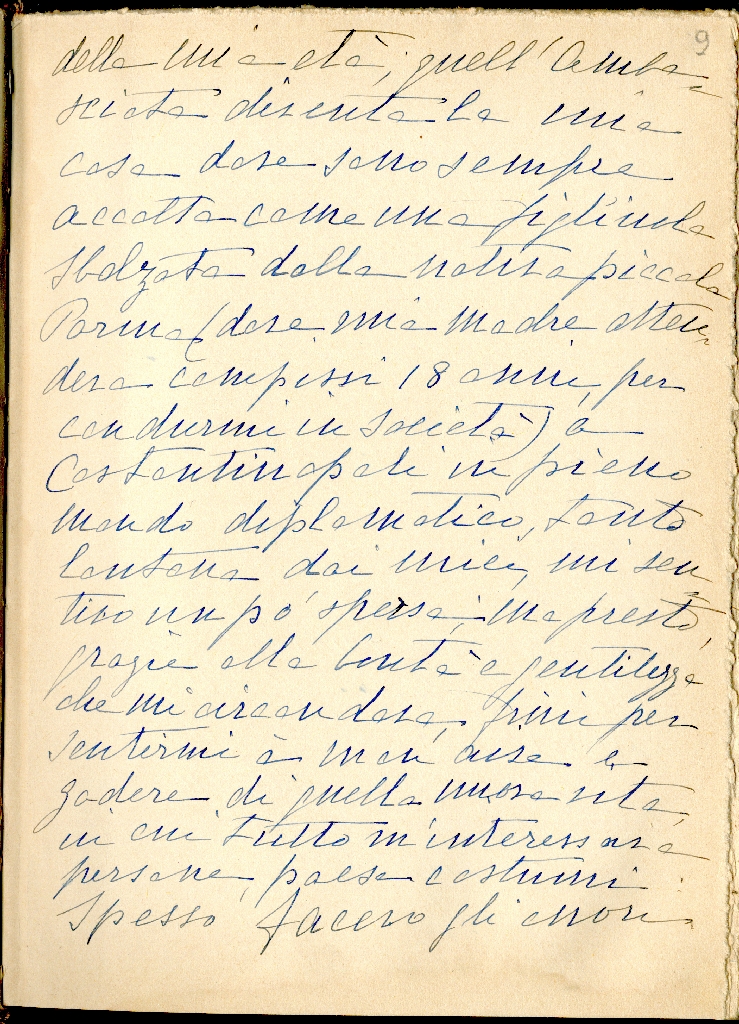 9
della mia età, quell'Amba-
sciata diventa la mia
casa dove sono sempre
accolta come una figliuola
Sbalzata dalla nativa piccola
Parma (dove mia madre atten-
deva compissi 18 anni, per
condurmi in Società) a
Costantinopoli in pieno
mondo diplomatico, tanto
lontana dai miei, mi sen-
tivo un pò spersa; ma presto,
grazie alla bontà e gentilezza
che mi circondava, finii per
sentirmi à mon aise e
godere di quella nuova vita,
in cui tutto m'interessava
persone, paese costumi.
Spesso facevo gli onori